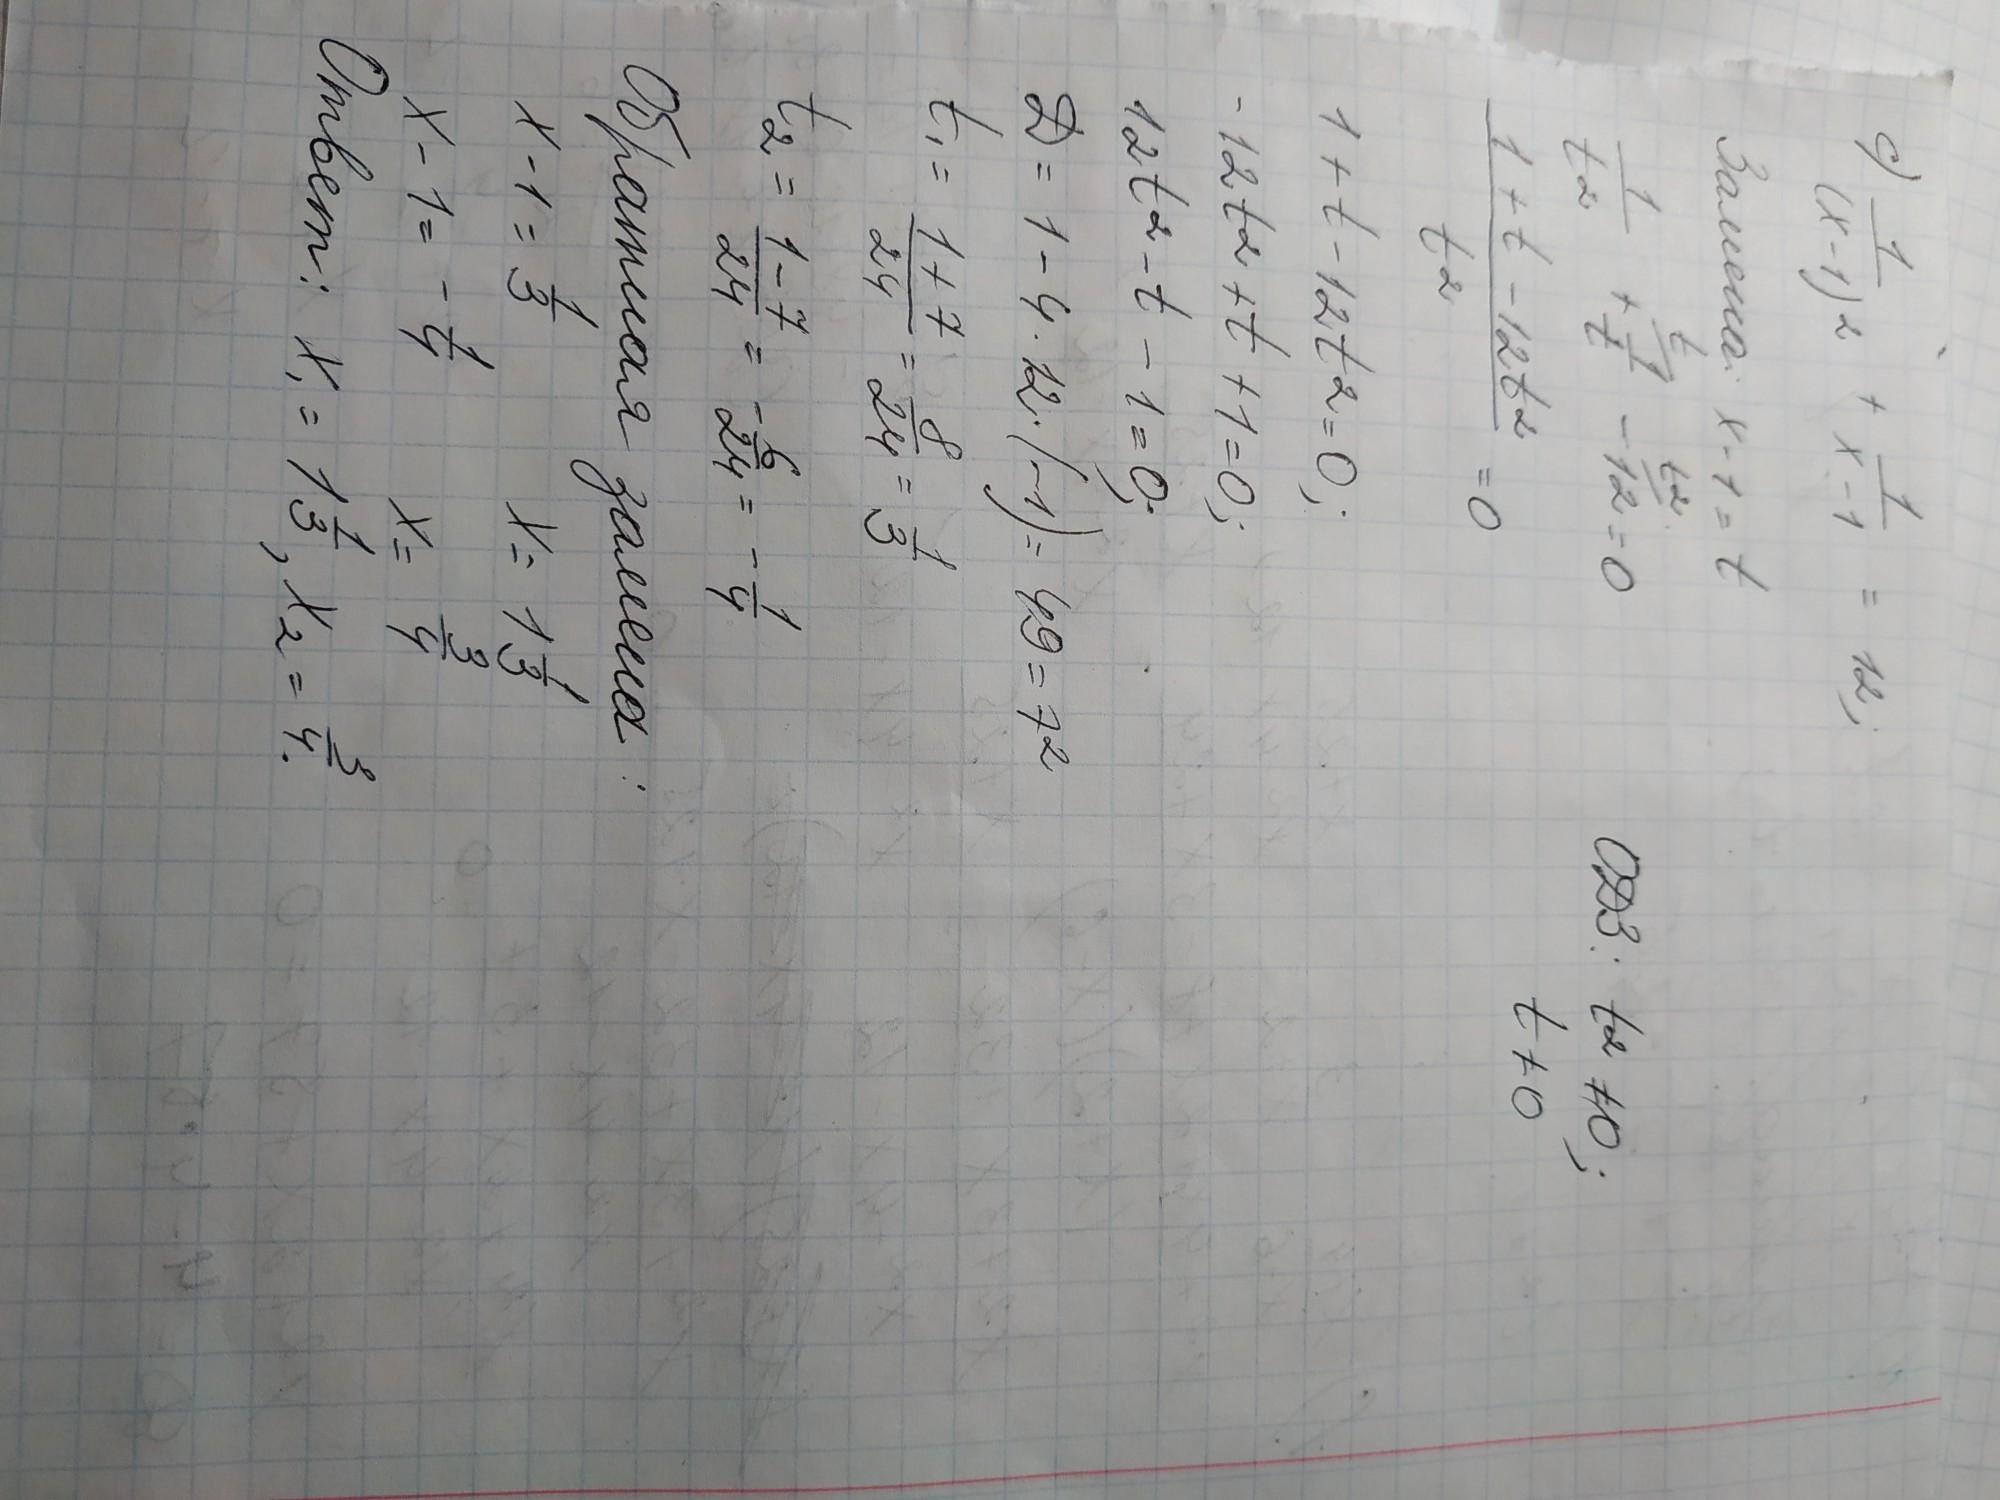 c) 1/(x-1)² + 1/(x-1) = 12;
Замена: x-1=t
1/t² + 1/t (t - 12 (t² = 0 ОДЗ: t² ≠0;
(1+t-12t²)/t² = 0 t≠0
1+t-12t²=0;
-12t²+t+1=0;
12t²-t-1=0;
D=1-4·12·(-1)=49=7²
t₁= (1+7)/24 = 8/24 = 1/3
t₂= (1-7)/24 = -6/24 = -1/4
Обратная замена:
x-1= 1/3 x= 1 1/3
x-1= -1/4 x= 3/4
Ответ: x₁= 1 1/3, x₂= 3/4.